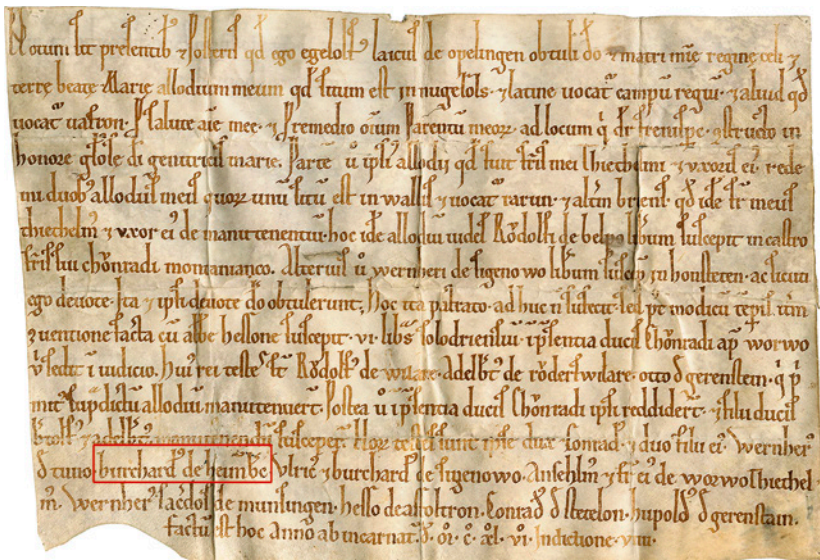 Notum sit presentib⁊ ⁊ posteris qd ego egelolf⁊ laicus de opelingen obtuli do ⁊ matri mie regine celi ⁊
terre beate Marie allodium meum qd situm est in nugerols ⁊ latine uocat campu regu ⁊ aliud qd
uocat uafron. P salute aie mee ⁊ P remedio oium Parentu meor ad locum q dr frenisp̄c. ostructo in
honore glose di genitricis marie. Parte u ipsi allodij qd fuit fris mei thiechelmi ⁊ uxoris ei rede
mi duob allodiis meis quor unu situ est in wallis ⁊ uocat rarun ⁊ altm briens. qd ide fr meus
thiechelm ⁊ uxor ei de manu tenentiu. hoc ide allodiu uidel Rodolfi de belpo libum suscepit in castro
fris sui chonradi moniamanco. Alterius u wernheri de sigenowo libum suscep in honsteten. ac sicuti
ego deuote. Ita ⁊ ipsi deuote do obtulerunt. Hoc ita patrato. ad huc n sufecit. sed pt modicu tepis
ɔuentione facta cu abbe hessone suscepit. vi. libs solodrensiu. ipsentia ducis Chonradi ap worwo
u sedit i iudicio. Hui rei teste st Rodolf de wilare. Adelbt de roderswilare. otto d gerenstein. q p
mit supdictu allodiu manutenuert. Postea u ipsentia ducis Chonradi ipsi reddidert. ⁊ filii ducis
btolf ⁊ adelbt manutenendu susceper. Hor testes sunt ipse dux Conrad ⁊ duo filii ei. Wernher
d tuno. burchard de heimbc Vlric ⁊ burchard de sigenowo. Anshelm ⁊ fr ei de worwo thiechel
m. Wernher sacdos de munsingen. hesso de assoltron. Conrad d stetelon. hupold d gerenstain.
factu est hoc Anno ab incarnat. d. oi. c. æl. vi. Indictione. viiii.